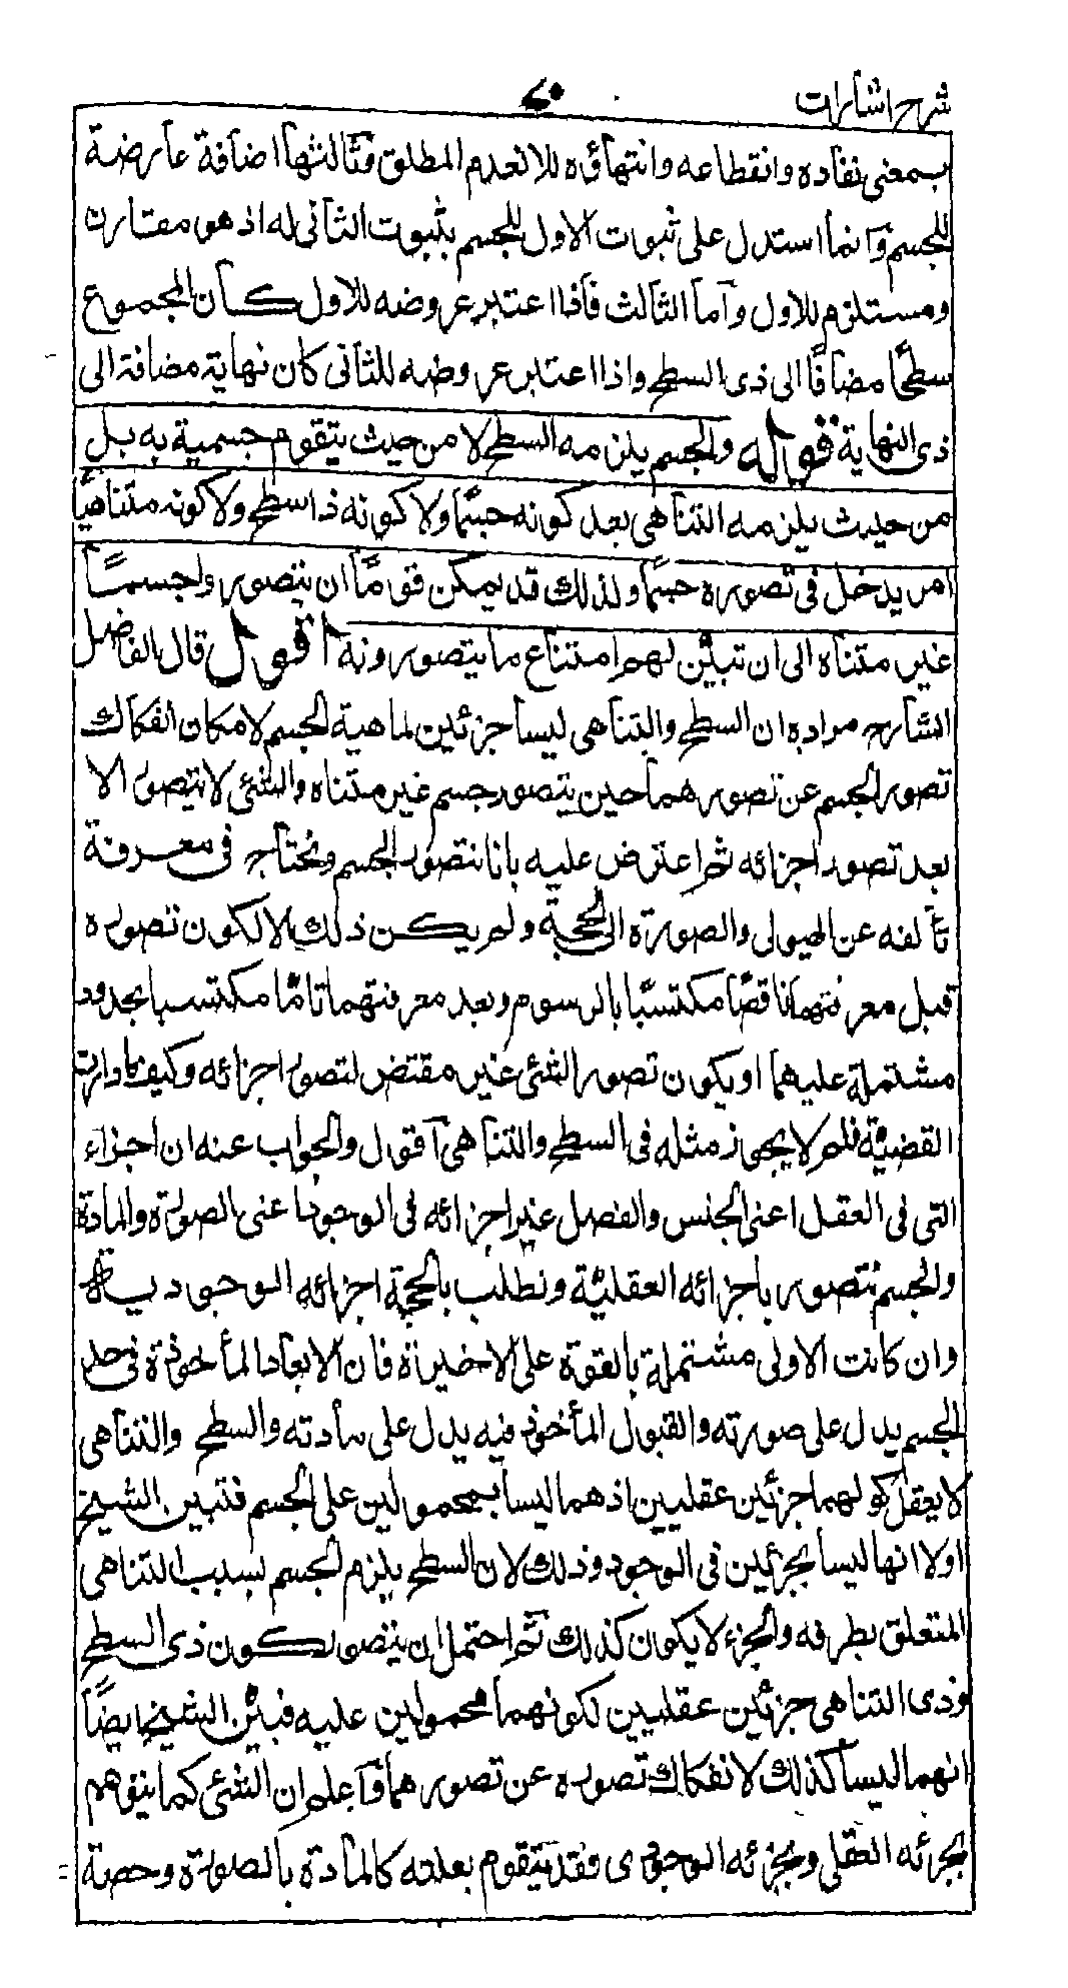 شرح اشارات
٤٠
بمعنى نفاده وانقطاعه وانتهاؤه للانعدم المطلق وثالثها اضافة عارضة
للجسم وانما استدل على ثبوت الاول للجسم بثبوت الثانى له اذ هو مقارن
ومستلزم للاول واما الثالث فاذا اعتبر عروضه للاول كان المجموع
سطحًا مضافًا الى ذى السطح واذا اعتبر عروضه للثانى كان نهاية مضافة الى
ذى النهاية قوله والجسم يلزمه السطح لا من حيث يتقوم جسمية به بل
من حيث يلزمه التناهى بعد كونه جسمًا ولا كونه ذا سطح ولا كونه متناهيًا
امر يدخل فى تصوره جسمًا ولذلك قد يمكن قومًا ان يتصوروا جسمًا
غير متناه الى ان تبيّن لهم امتناع ما يتصورونه اقول قال الفاضل
الشارح مراده ان السطح والتناهى ليسا جزئين لماهية الجسم لامكان انفكاك
تصور الجسم عن تصورهما حين يتصور جسم غير متناه والشئ لا يتصور الا
بعد تصور اجزائه ثم اعترض عليه بانا نتصور الجسم ونحتاج فى معرفة
تألفه عن الهيولى والصورة الى الحجة ولم يكن ذلك الا لكون تصوره
قبل معرفتهما ناقصًا مكتسبًا بالرسوم وبعد معرفتهما تامًا مكتسبا بحدود
مشتملة عليهما او يكون تصور الشئ غير مقتض لتصور اجزائه وكيف ما دارت
القضيّة فلم لا يجوز مثله فى السطح والتناهى اقول والجواب عنه ان اجزاء
التى فى العقل اعنى الجنس والفصل غير اجزائه فى الوجود اعنى الصورة والمادة
والجسم نتصور باجزائه العقليّة ونطلب بالحجة اجزائه الوجودية
وان كانت الاولى مشتملة بالقوة على الاخيرة فان الابعاد المأخوذة فى حد
الجسم يدل على صورته والقبول المأخوذ فيه يدل على مأدته والسطح والتناهى
لا يعقل كولهما جزئين عقليين اذ هما ليسا بمحمولين على الجسم فتبين الشيخ
اولا انها ليسا بجزئين فى الوجود وذلك لان السطح يلزم الجسم بسبب التناهى
المتعلق بطرفه والجزء لا يكون كذلك ثم احتمل ان يتصور كون ذى السطح
وذى التناهى جزئين عقليين لكونهما محمولين عليه فبيّن الشيخ ايضًا
انهما ليسا كذلك لانفكاك تصوره عن تصورهما واعلم ان الشئ كما يتقوم
بجزئه العقلى وبجزئه الوجودى فقد يتقوم بعلته كالمأدة بالصورة وحصة